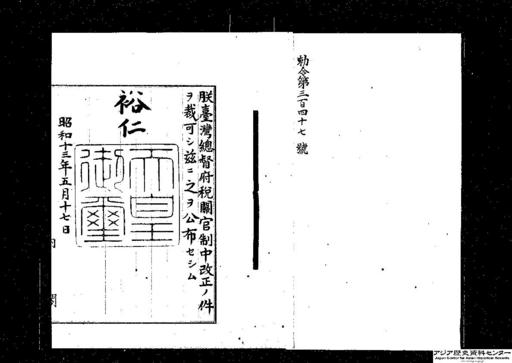 勅令第三百四十七號
朕臺灣總督府税關官制中改正ノ件
ヲ裁可シ茲ニ之ヲ公布セシム
裕仁
天皇
御璽
昭和十三年五月十七日
内閣
アジア歴史資料センター
Japan Center for Asian Historical Records